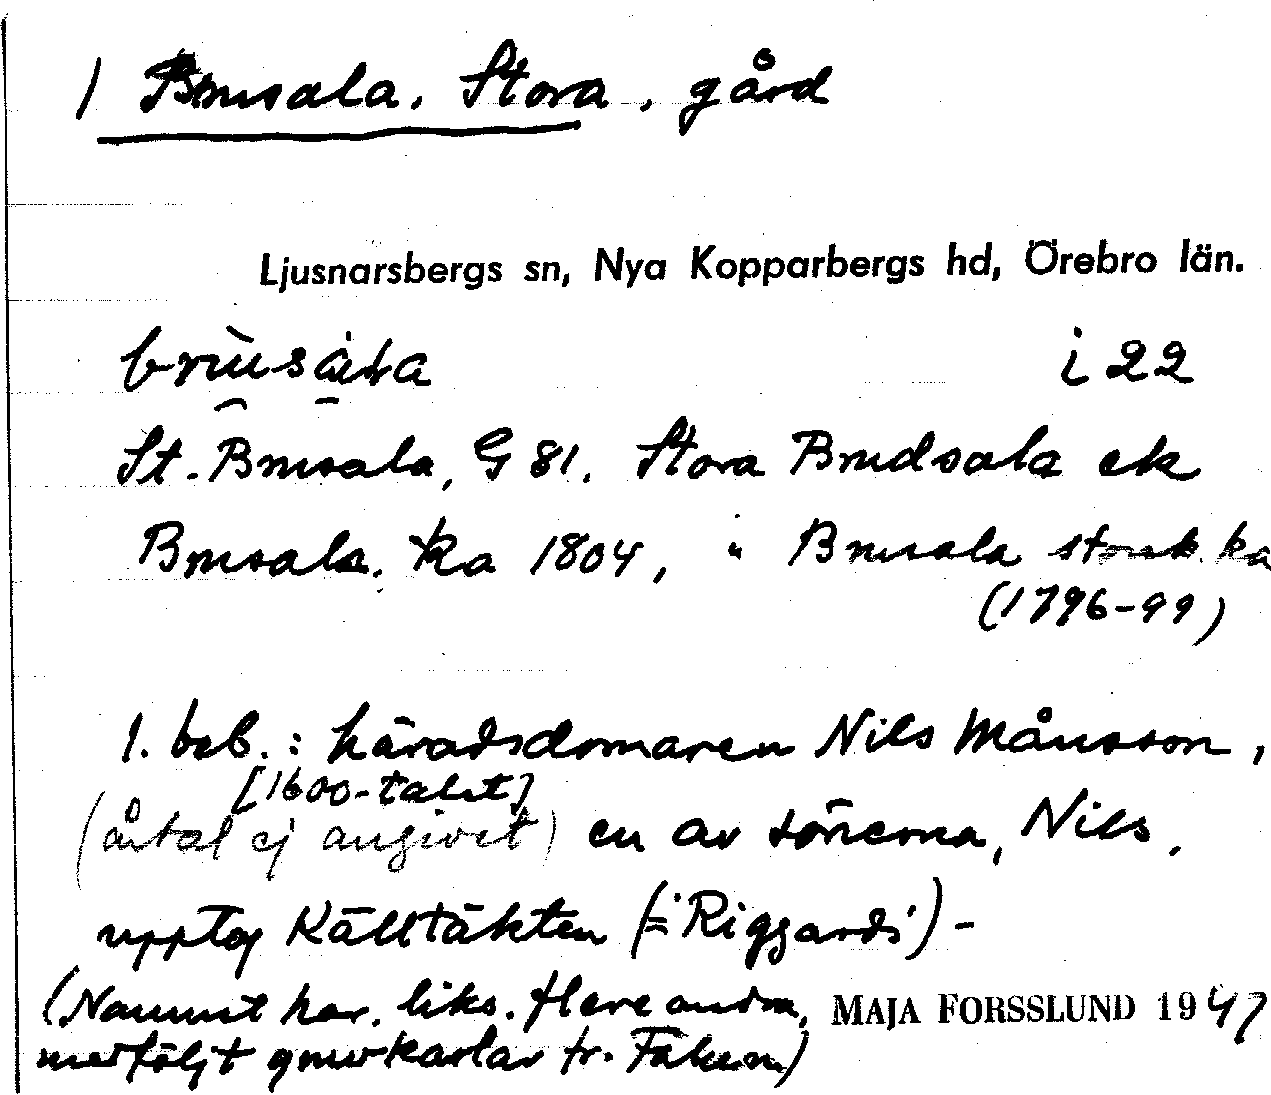 1 Brusala. Stora. gård
Ljusnarsbergs sn, Nya Kopparbergs hd, Örebro län.
i 22
St. Brusala, G 81. Stora Brudsala ek
Brusala. ka 1804, " Brusala storsk. ka
(1796-99)
1. beb. : häradsdomaren Nils Månsson,
[1600-talet]
(årtal ej angivet) en av sönerna, Nils,
upptog Källtäkten (= 'Riggards') -
(Namnet har. liks. flere andra, MAJA FORSSLUND 1947
medföljt gruvkarlar fr. Falun)